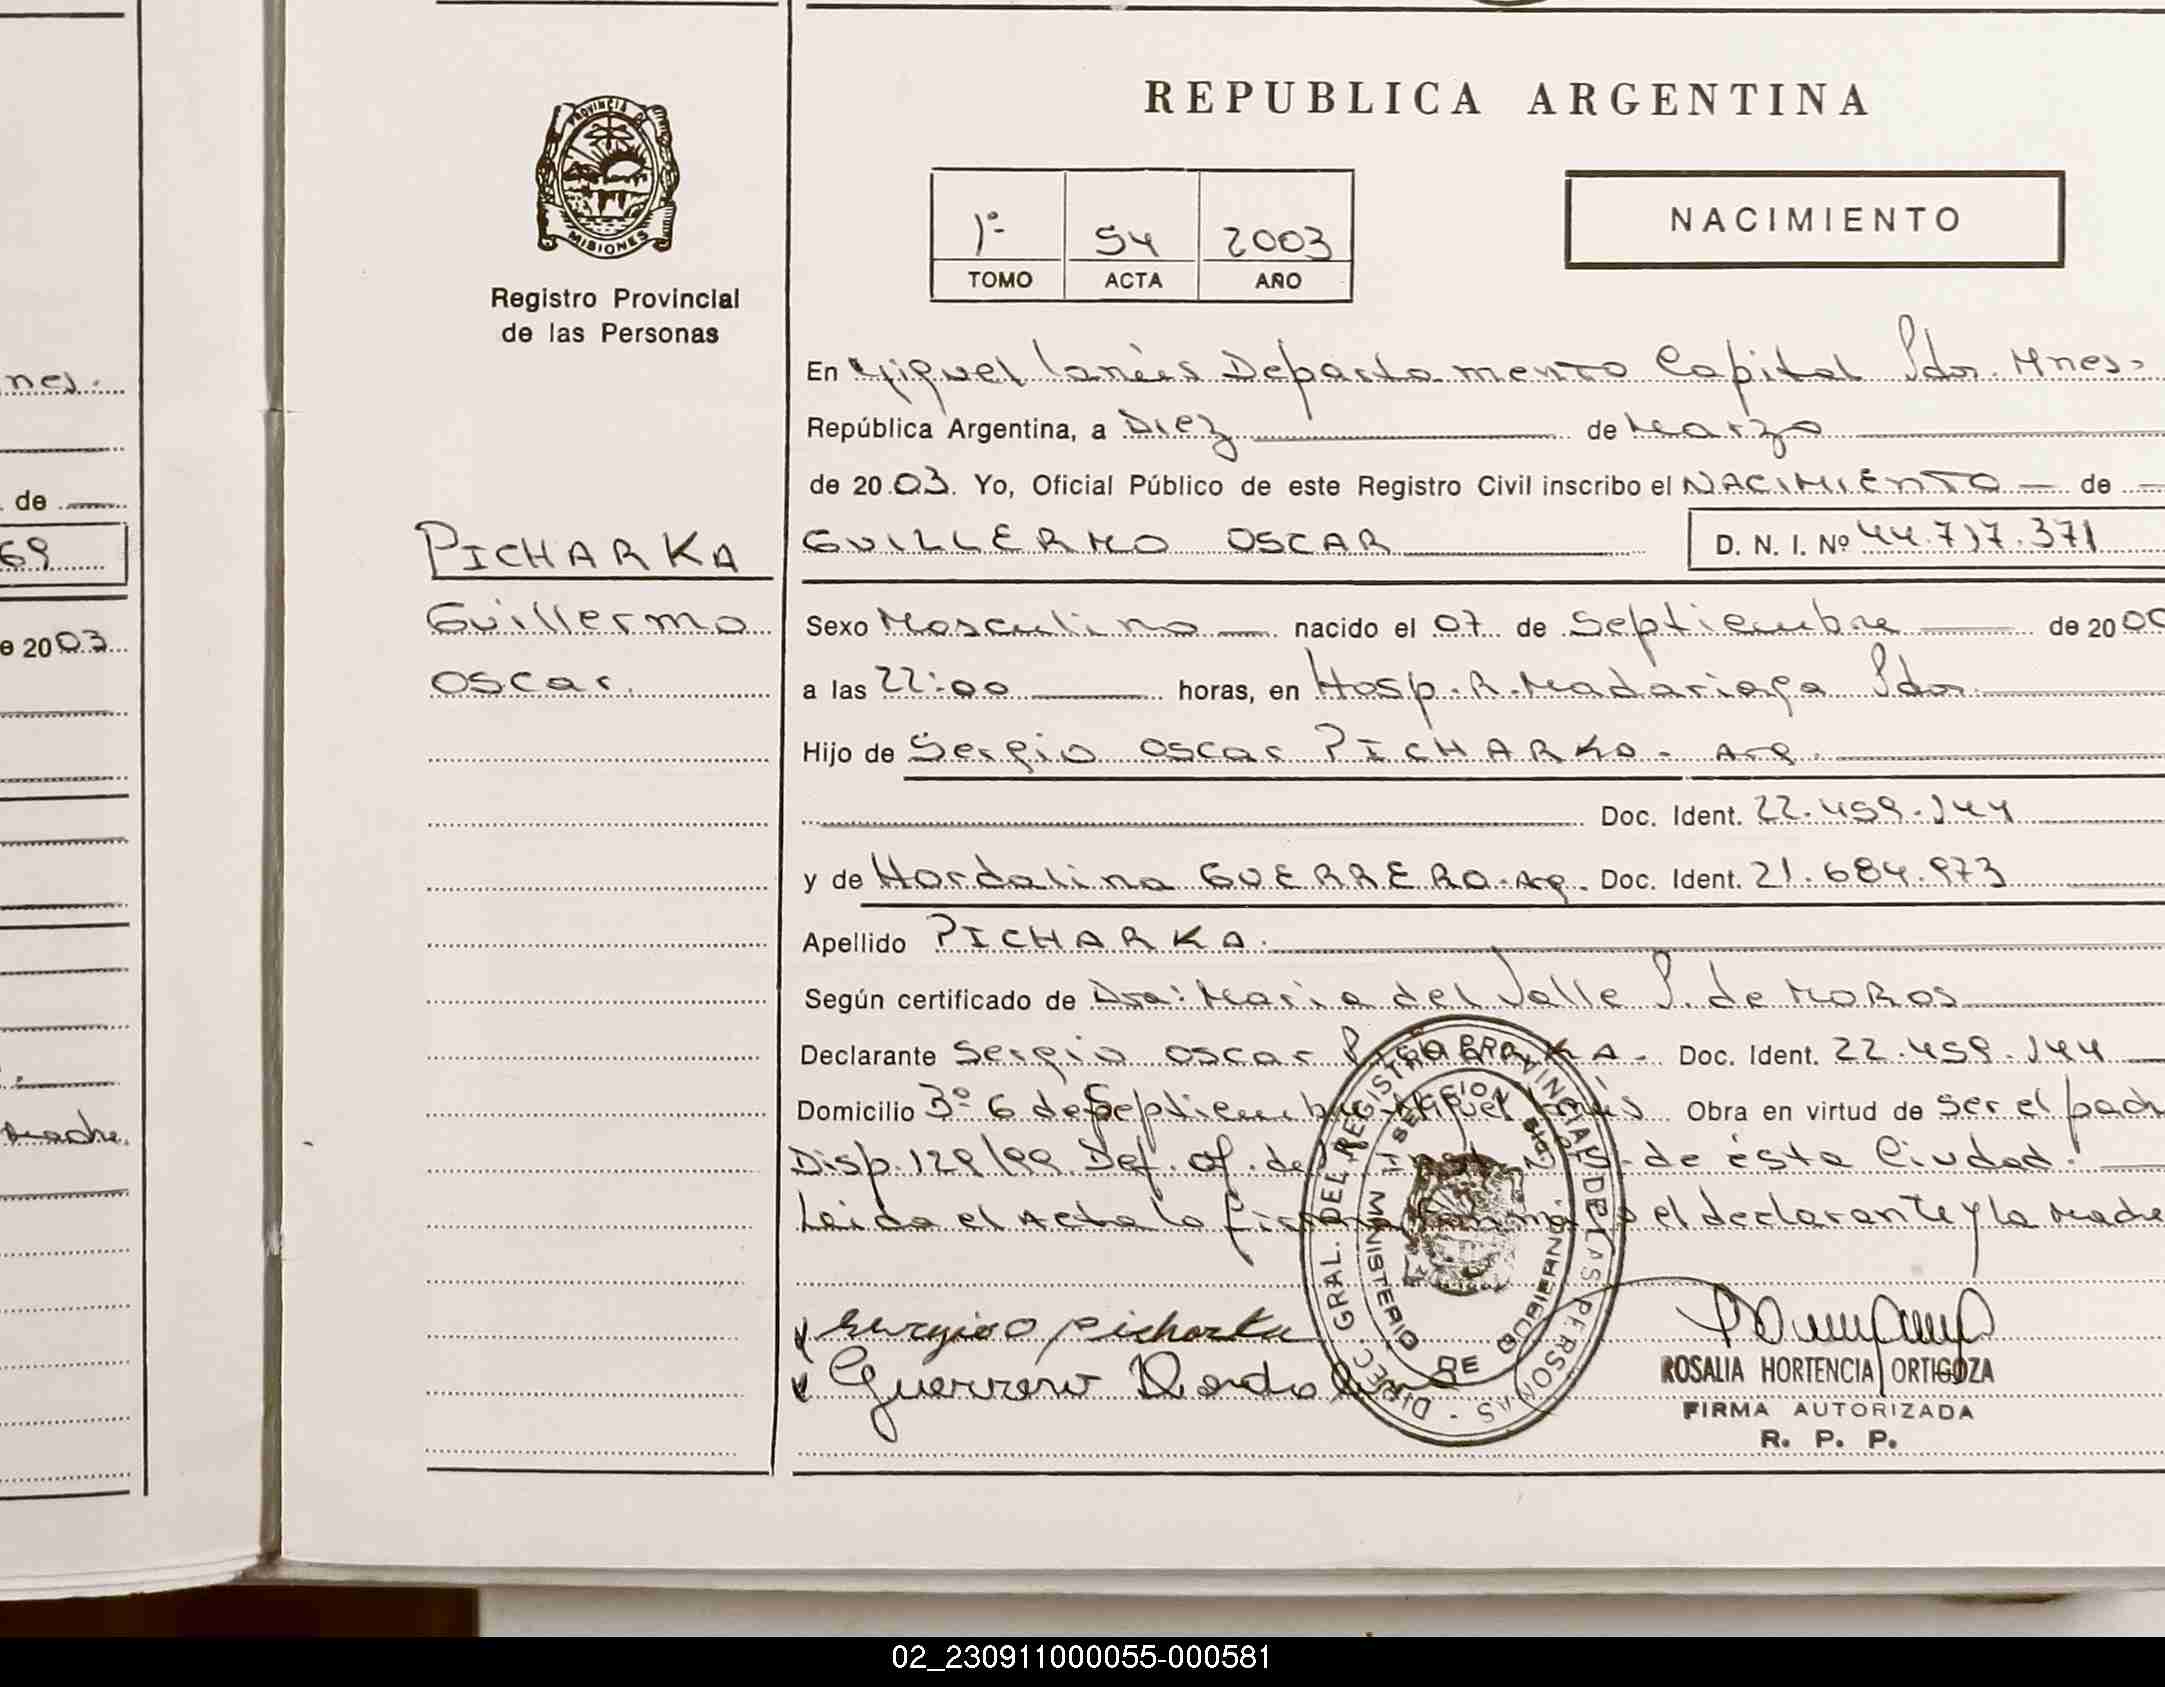 nes.
de
69
e 2003
Madre.
PROVINCIA DE
MISIONES
Registro Provincial
de las Personas
PICHARKA
Guillermo
Oscar.
REPUBLICA ARGENTINA
1º 54 2003
TOMO ACTA AÑO
NACIMIENTO
En Miguel Lanús Departamento Capital Pdas. Mnes.
República Argentina, a Diez de Marzo
de 2003. Yo, Oficial Público de este Registro Civil inscribo el NACIMIENTO de
GUILLERMO OSCAR D. N. I. Nº 44.717.371
Sexo Masculino nacido el 07 de Septiembre de 2000
a las 22:00 horas, en Hosp. R. Madariaga Pdas.
Hijo de Sergio Oscar PICHARKA - Arg.
Doc. Ident. 22.459.144
y de Mardalina GUERRERO - Arg. Doc. Ident. 21.684.973
Apellido PICHARKA.
Según certificado de Dra: Maria del Valle P. de MOROS
Declarante Sergio Oscar PICHARKA - Doc. Ident. 22.459.144
Domicilio 3º 6 de Septiembre Miguel Lanús Obra en virtud de ser el padre
Disp. 129/99 Def. Of. de Inst. Nº de ésta Ciudad.
Leida el Acta la firman conmigo el declarante y la Madre
Sergio O Picharka
Guerrero Mardalina
DIREC GRAL. DEL REGISTRO PROVINCIAL DE LAS PERSONAS -
MINISTERIO DE GOBIERNO
SECCION
ROSALIA HORTENCIA ORTIGOZA
FIRMA AUTORIZADA
R. P. P.
02_230911000055-000581